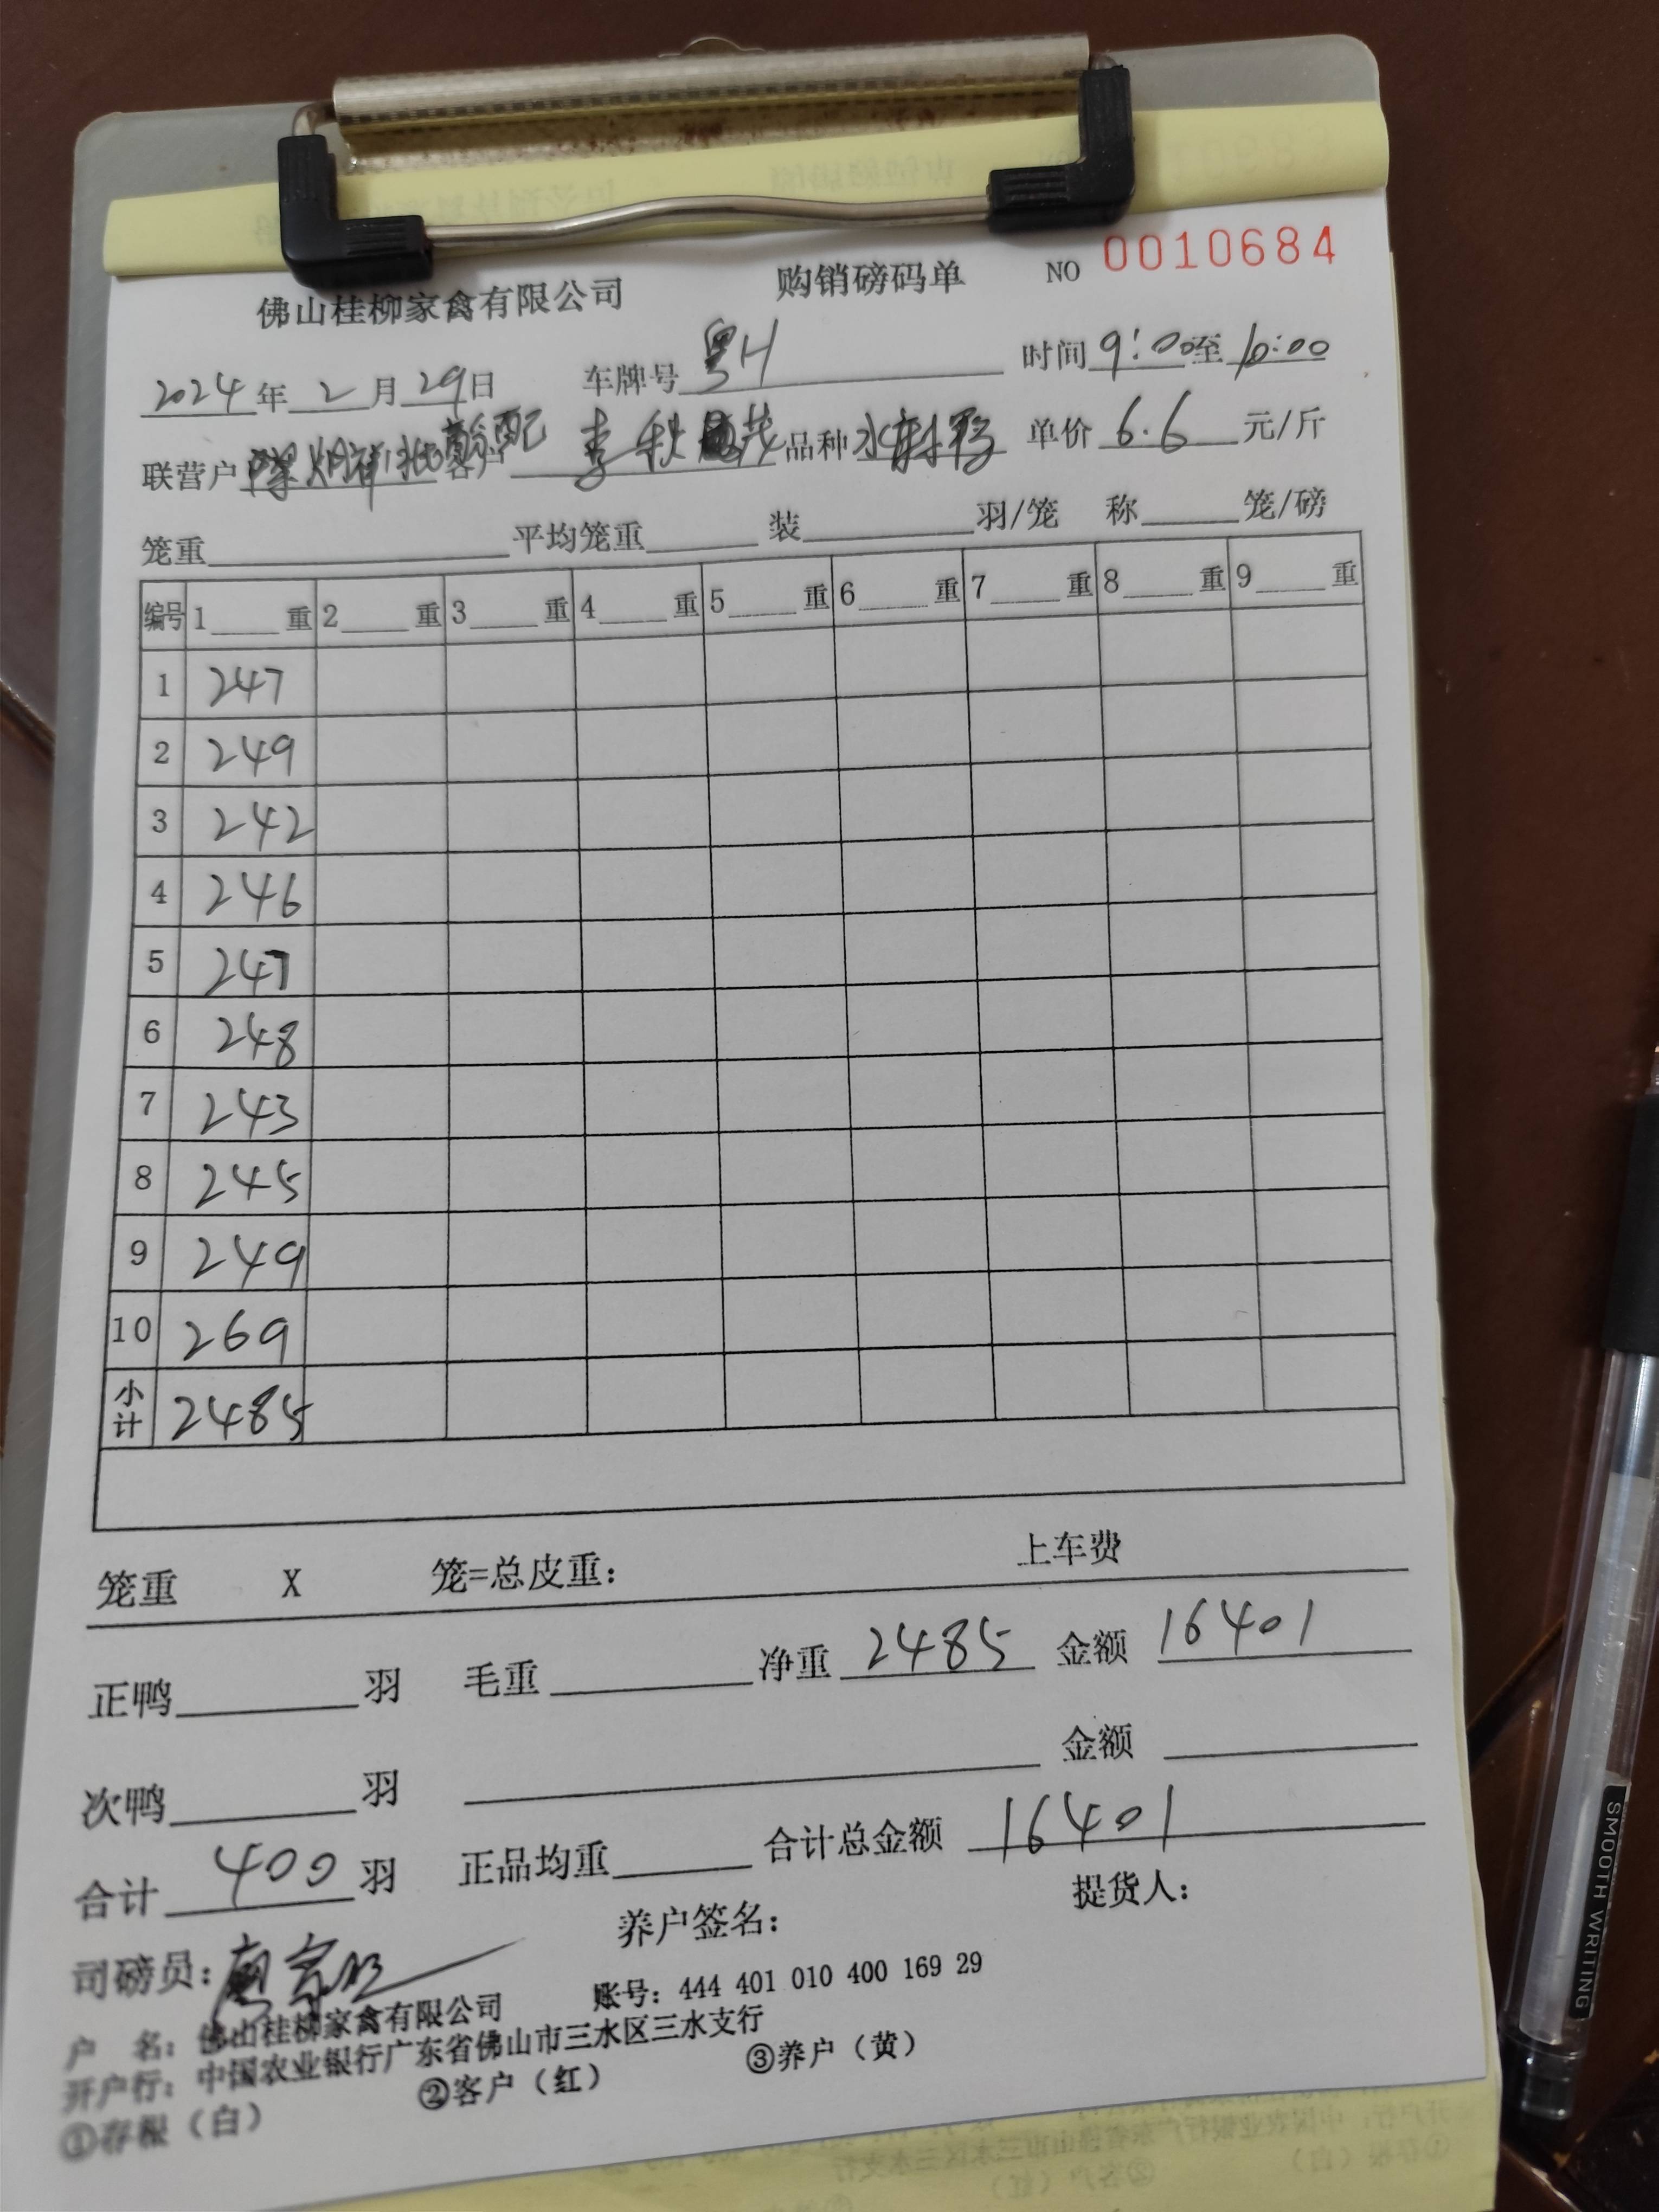 佛山桂柳家禽有限公司 购销磅码单 NO 0010684
2024年2月29日 车牌号 粤H 时间 9:00至10:00
联营户 客户 李秋 品种 水 单价 6.6 元/斤
笼重 平均笼重 装 羽/笼 称 笼/磅
编号 1 重 2 重 3 重 4 重 5 重 6 重 7 重 8 重 9 重
1 247
2 249
3 242
4 246
5 247
6 248
7 243
8 245
9 249
10 269
小计 2485
笼重 X 笼=总皮重: 上车费
正鸭 羽 毛重 净重 2485 金额 16401
次鸭 羽 金额
合计 400 羽 正品均重 合计总金额 16401
司磅员: 养户签名: 提货人:
户 名: 佛山桂柳家禽有限公司 账号: 444 401 010 400 169 29
开户行: 中国农业银行广东省佛山市三水区三水支行
①存根（白） ②客户（红） ③养户（黄）
SMOOTH WRITING